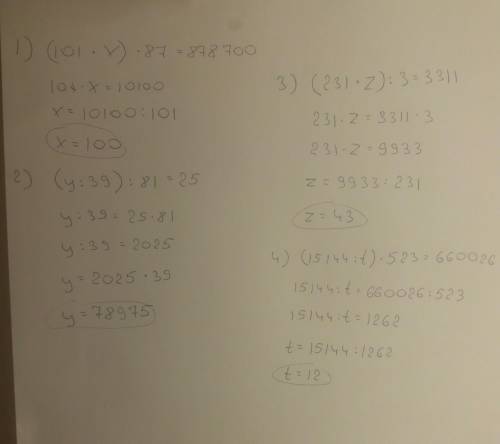 1) (101 · x) · 87 = 878700
101 · x = 10100
x = 10100 : 101
x = 100
2) (y : 39) : 81 = 25
y : 39 = 25 · 81
y : 39 = 2025
y = 2025 · 39
y = 78975
3) (231 · z) : 3 = 3311
231 · z = 3311 · 3
231 · z = 9933
z = 9933 : 231
z = 43
4) (15144 : t) · 523 = 660026
15144 : t = 660026 : 523
15144 : t = 1262
t = 15144 : 1262
t = 12